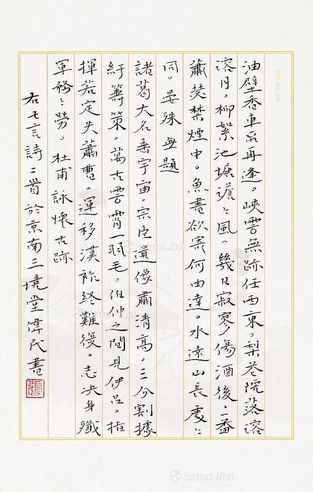 油壁香車不再逢。峽雲無跡任西東。梨花院落溶
溶月。柳絮池塘澹〻風。幾日寂寥傷酒後。一番
蕭瑟禁煙中。魚書欲寄何由達。水遠山長處〻
同。晏殊無題
諸葛大名垂宇宙。宗臣遺像肅清高。三分割據
紆籌策。萬古雲霄一羽毛。伯仲之間見伊呂。指
揮若定失蕭曹。運移漢祚終難復。志決身殲
軍務〻勞。杜甫詠懷古跡
右七言詩二首於京南三境堂偉民書
Artron.Net